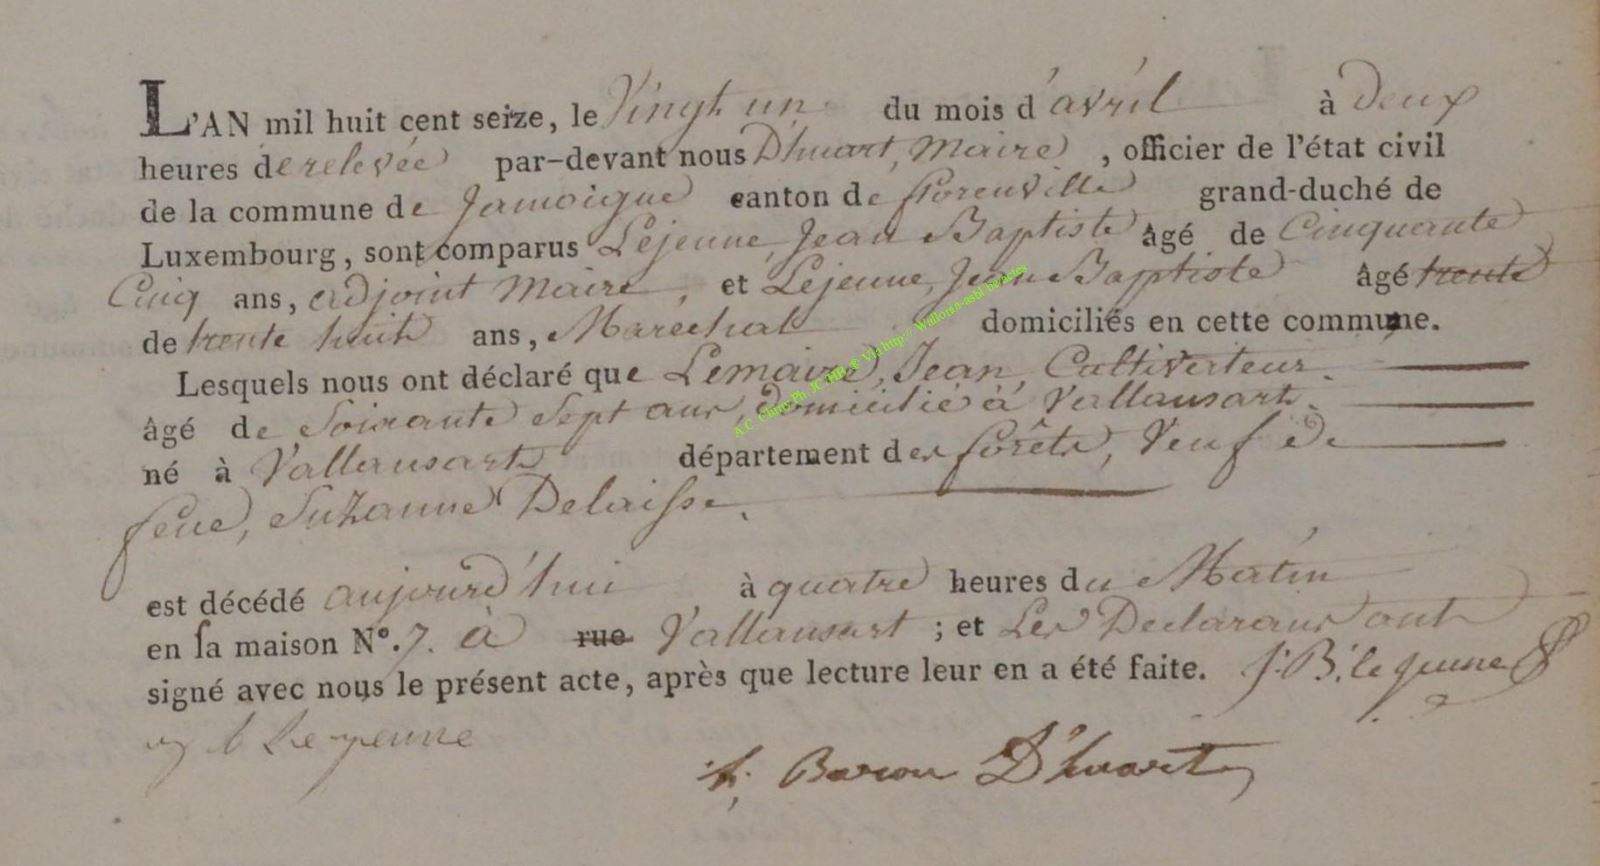 L'AN mil huit cent seize, le Vingt un du mois d'avril à deux
heures de relevée par-devant nous D'huart, Maire, officier de l'état civil
de la commune de Jamoigne canton de florenville grand-duché de
Luxembourg, sont comparus Lejeune, Jean Baptiste âgé de Cinquante
Cinq ans, adjoint Maire, et Lejeune, Jean Baptiste âgé trente
de trente huit ans, Marechal domiciliés en cette commune.
Lesquels nous ont déclaré que Lemaire, Jean, Cultivateur.
âgé de Soixante Sept ans, domicilié à Vallansart.
né à Vallansart département des forêts, Veuf de
feue, Suzanne Delaisse.
est décédé aujourd'hui à quatre heures du Matin
en sa maison N°. 7. à rue Vallansart ; et Les Declarans ont
signé avec nous le présent acte, après que lecture leur en a été faite. J: B: lejeune
Lejeune
Baron D'huart